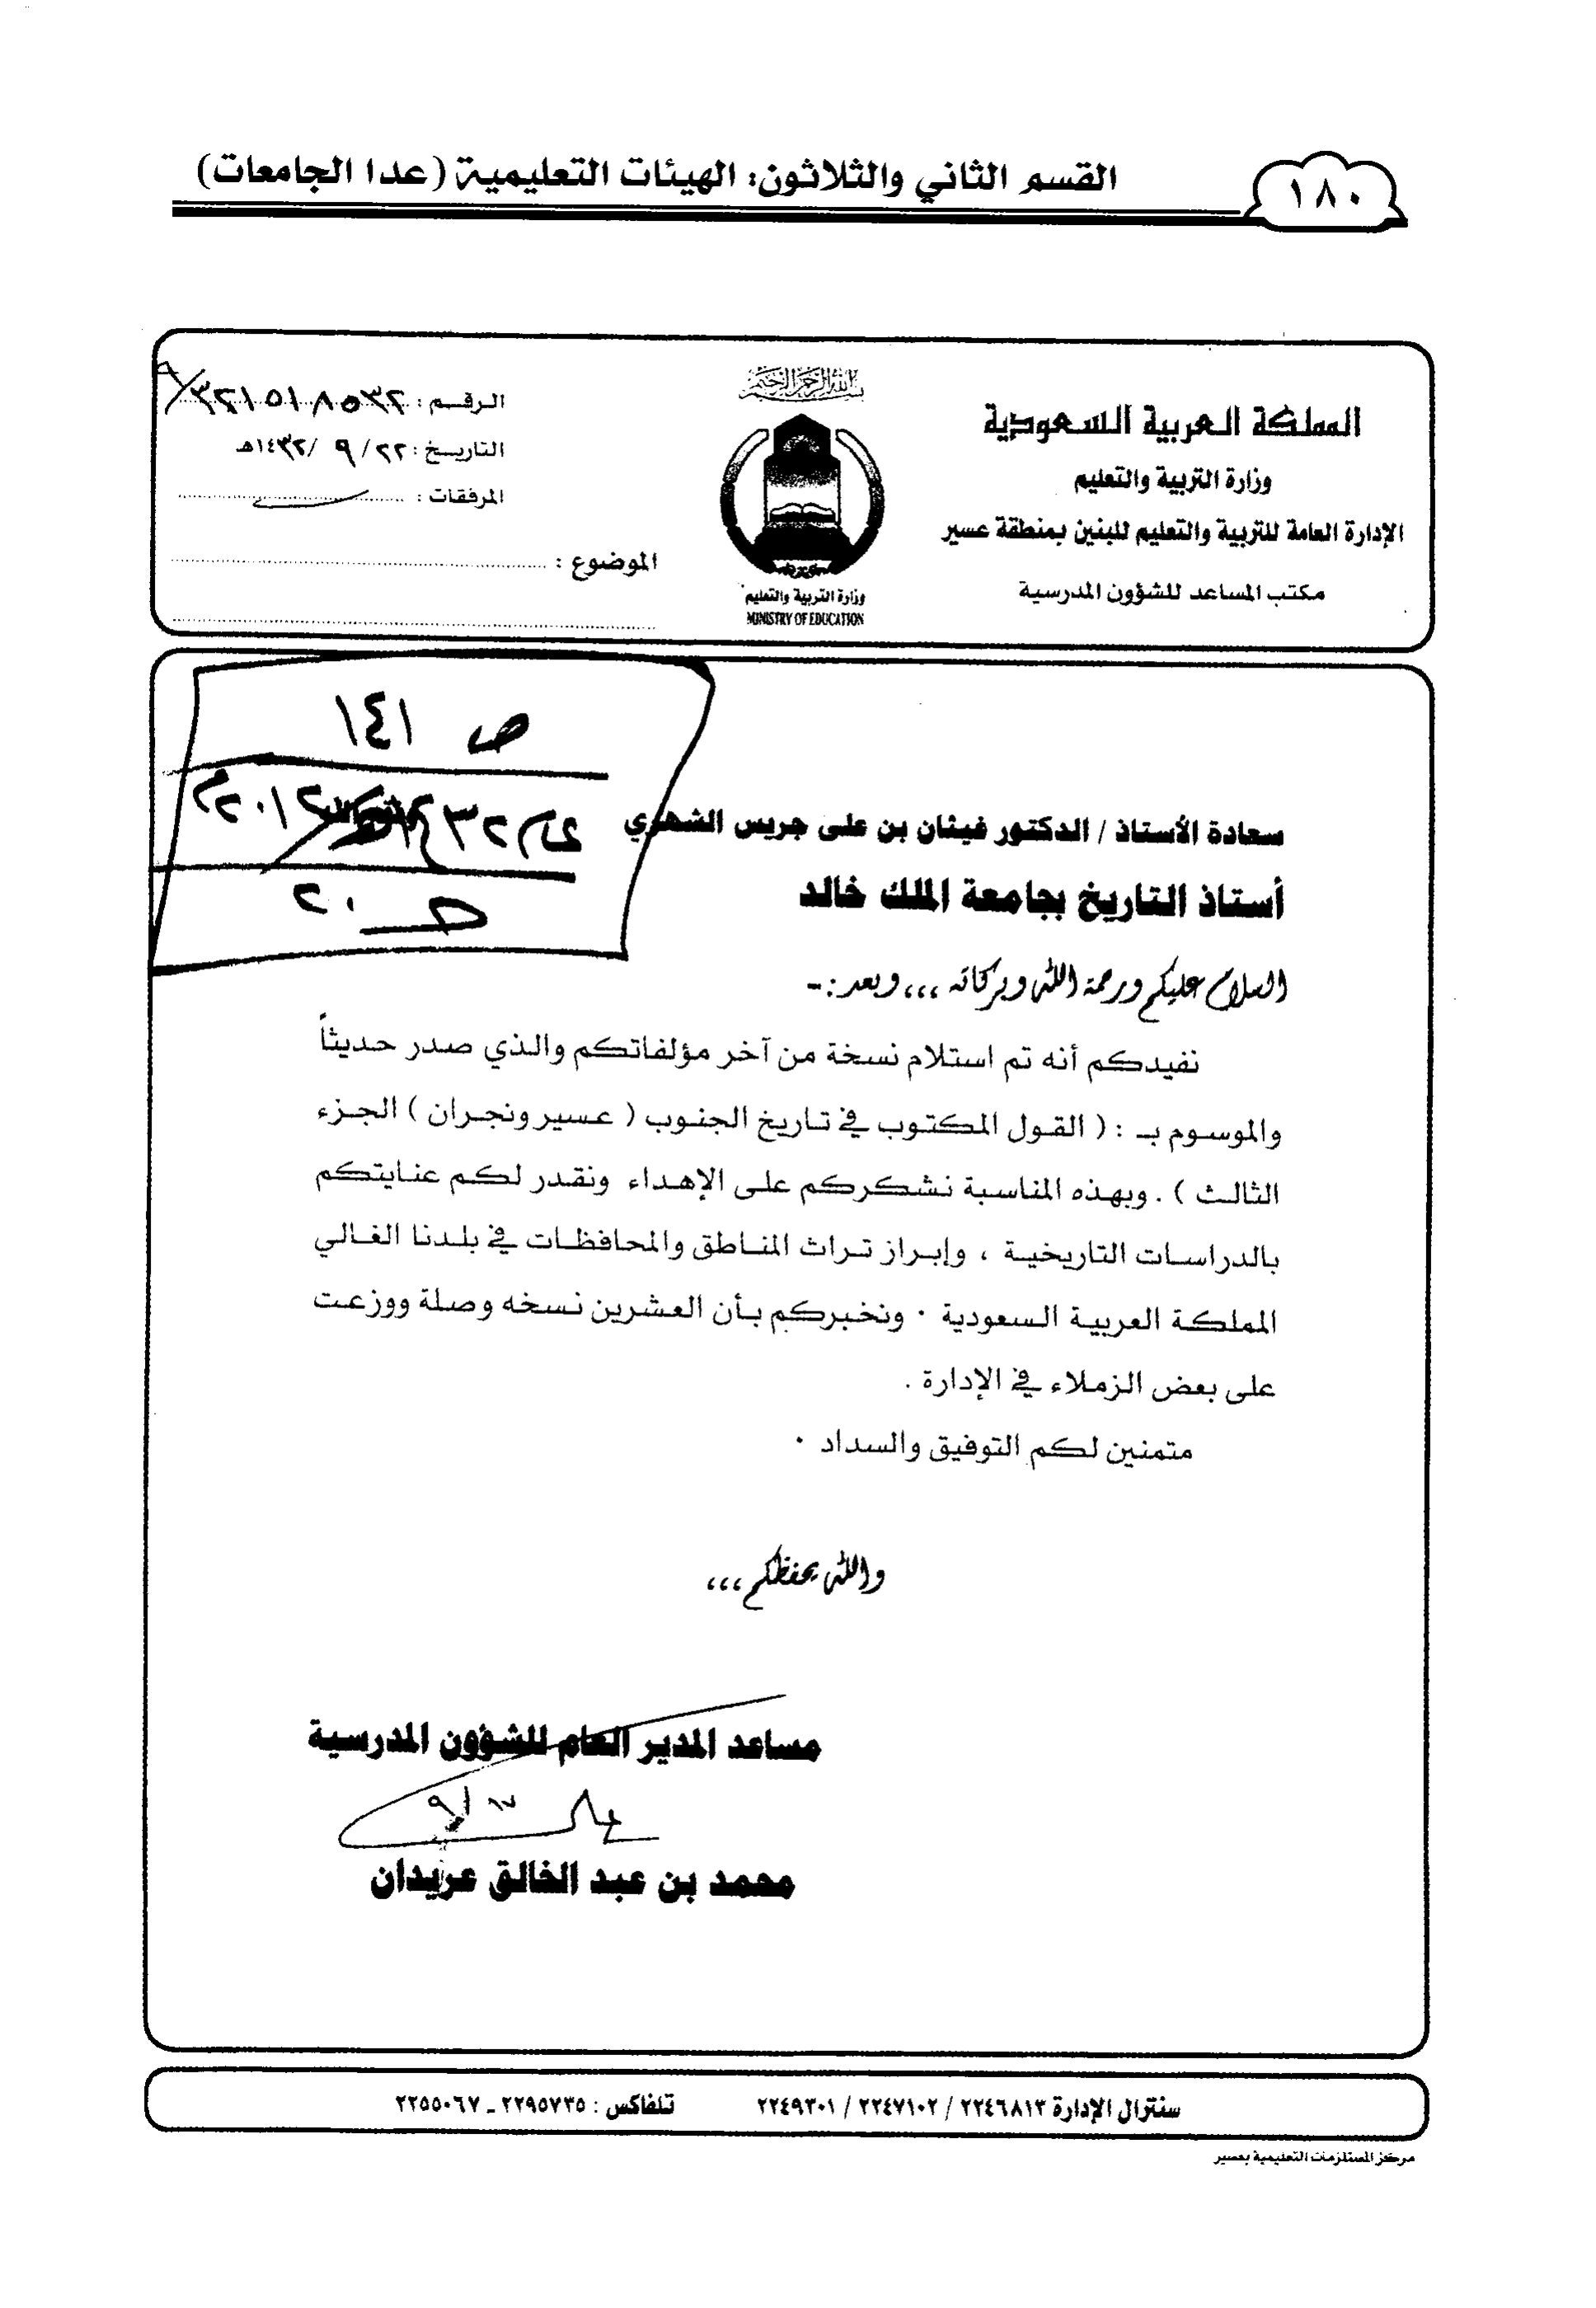 ١٨٠
القسم الثاني والثلاثون: الهيئات التعليمية (عدا الجامعات)
بسم الله الرحمن الرحيم
المملكة العربية السعودية
وزارة التربية والتعليم
الإدارة العامة للتربية والتعليم للبنين بمنطقة عسير
مكتب المساعد للشؤون المدرسية
وزارة التربية والتعليم
MINISTRY OF EDUCATION
الرقم : ٣٢١٥١٨٥٣٢/٩
التاريخ : ٢٢/ ٩ /١٤٣٢هـ
المرفقات :
الموضوع :
ص ١٤١
ص ٢٠
سعادة الأستاذ / الدكتور غيثان بن على جريس الشهري
أستاذ التاريخ بجامعة الملك خالد
السلام عليكم ورحمة الله وبركاته ،،، وبعد :-
نفيدكم أنه تم استلام نسخة من آخر مؤلفاتكم والذي صدر حديثاً
والموسوم بـ : ( القول المكتوب في تاريخ الجنوب ( عسير ونجران ) الجزء
الثالث ) . وبهذه المناسبة نشكركم على الإهداء ونقدر لكم عنايتكم
بالدراسات التاريخية ، وإبراز تراث المناطق والمحافظات في بلدنا الغالي
المملكة العربية السعودية ٠ ونخبركم بأن العشرين نسخه وصلة ووزعت
على بعض الزملاء في الإدارة .
متمنين لكم التوفيق والسداد ٠
والله يحفظكم ،،،
مساعد المدير العام للشؤون المدرسية
٩/١٧
محمد بن عبد الخالق عريدان
سنترال الإدارة ٢٢٤٦٨١٣ / ٢٢٤٧١٠٢ / ٢٢٤٩٣٠١ تلفاكس : ٢٢٩٥٧٣٥ ـ ٢٢٥٥٠٦٧
مركز المستلزمات التعليمية بعسير